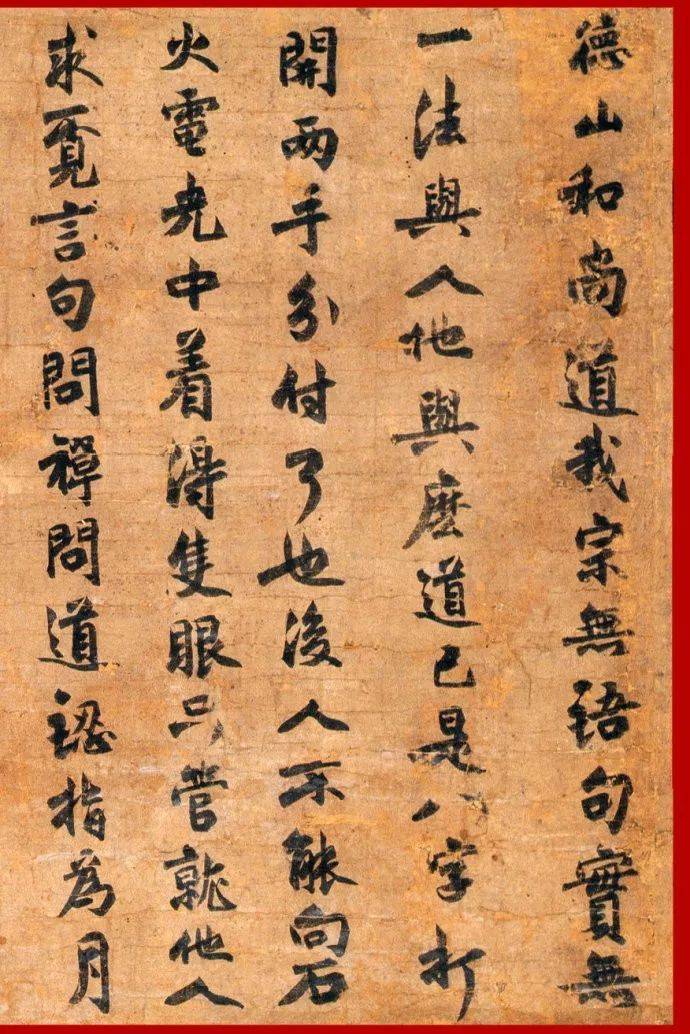 德山和尚道我宗無語句實無
一法與人他與麽道已是八字打
開兩手分付了也後人不能向石
火電光中着得隻眼只管就他人
求覓言句問禪問道認指為月